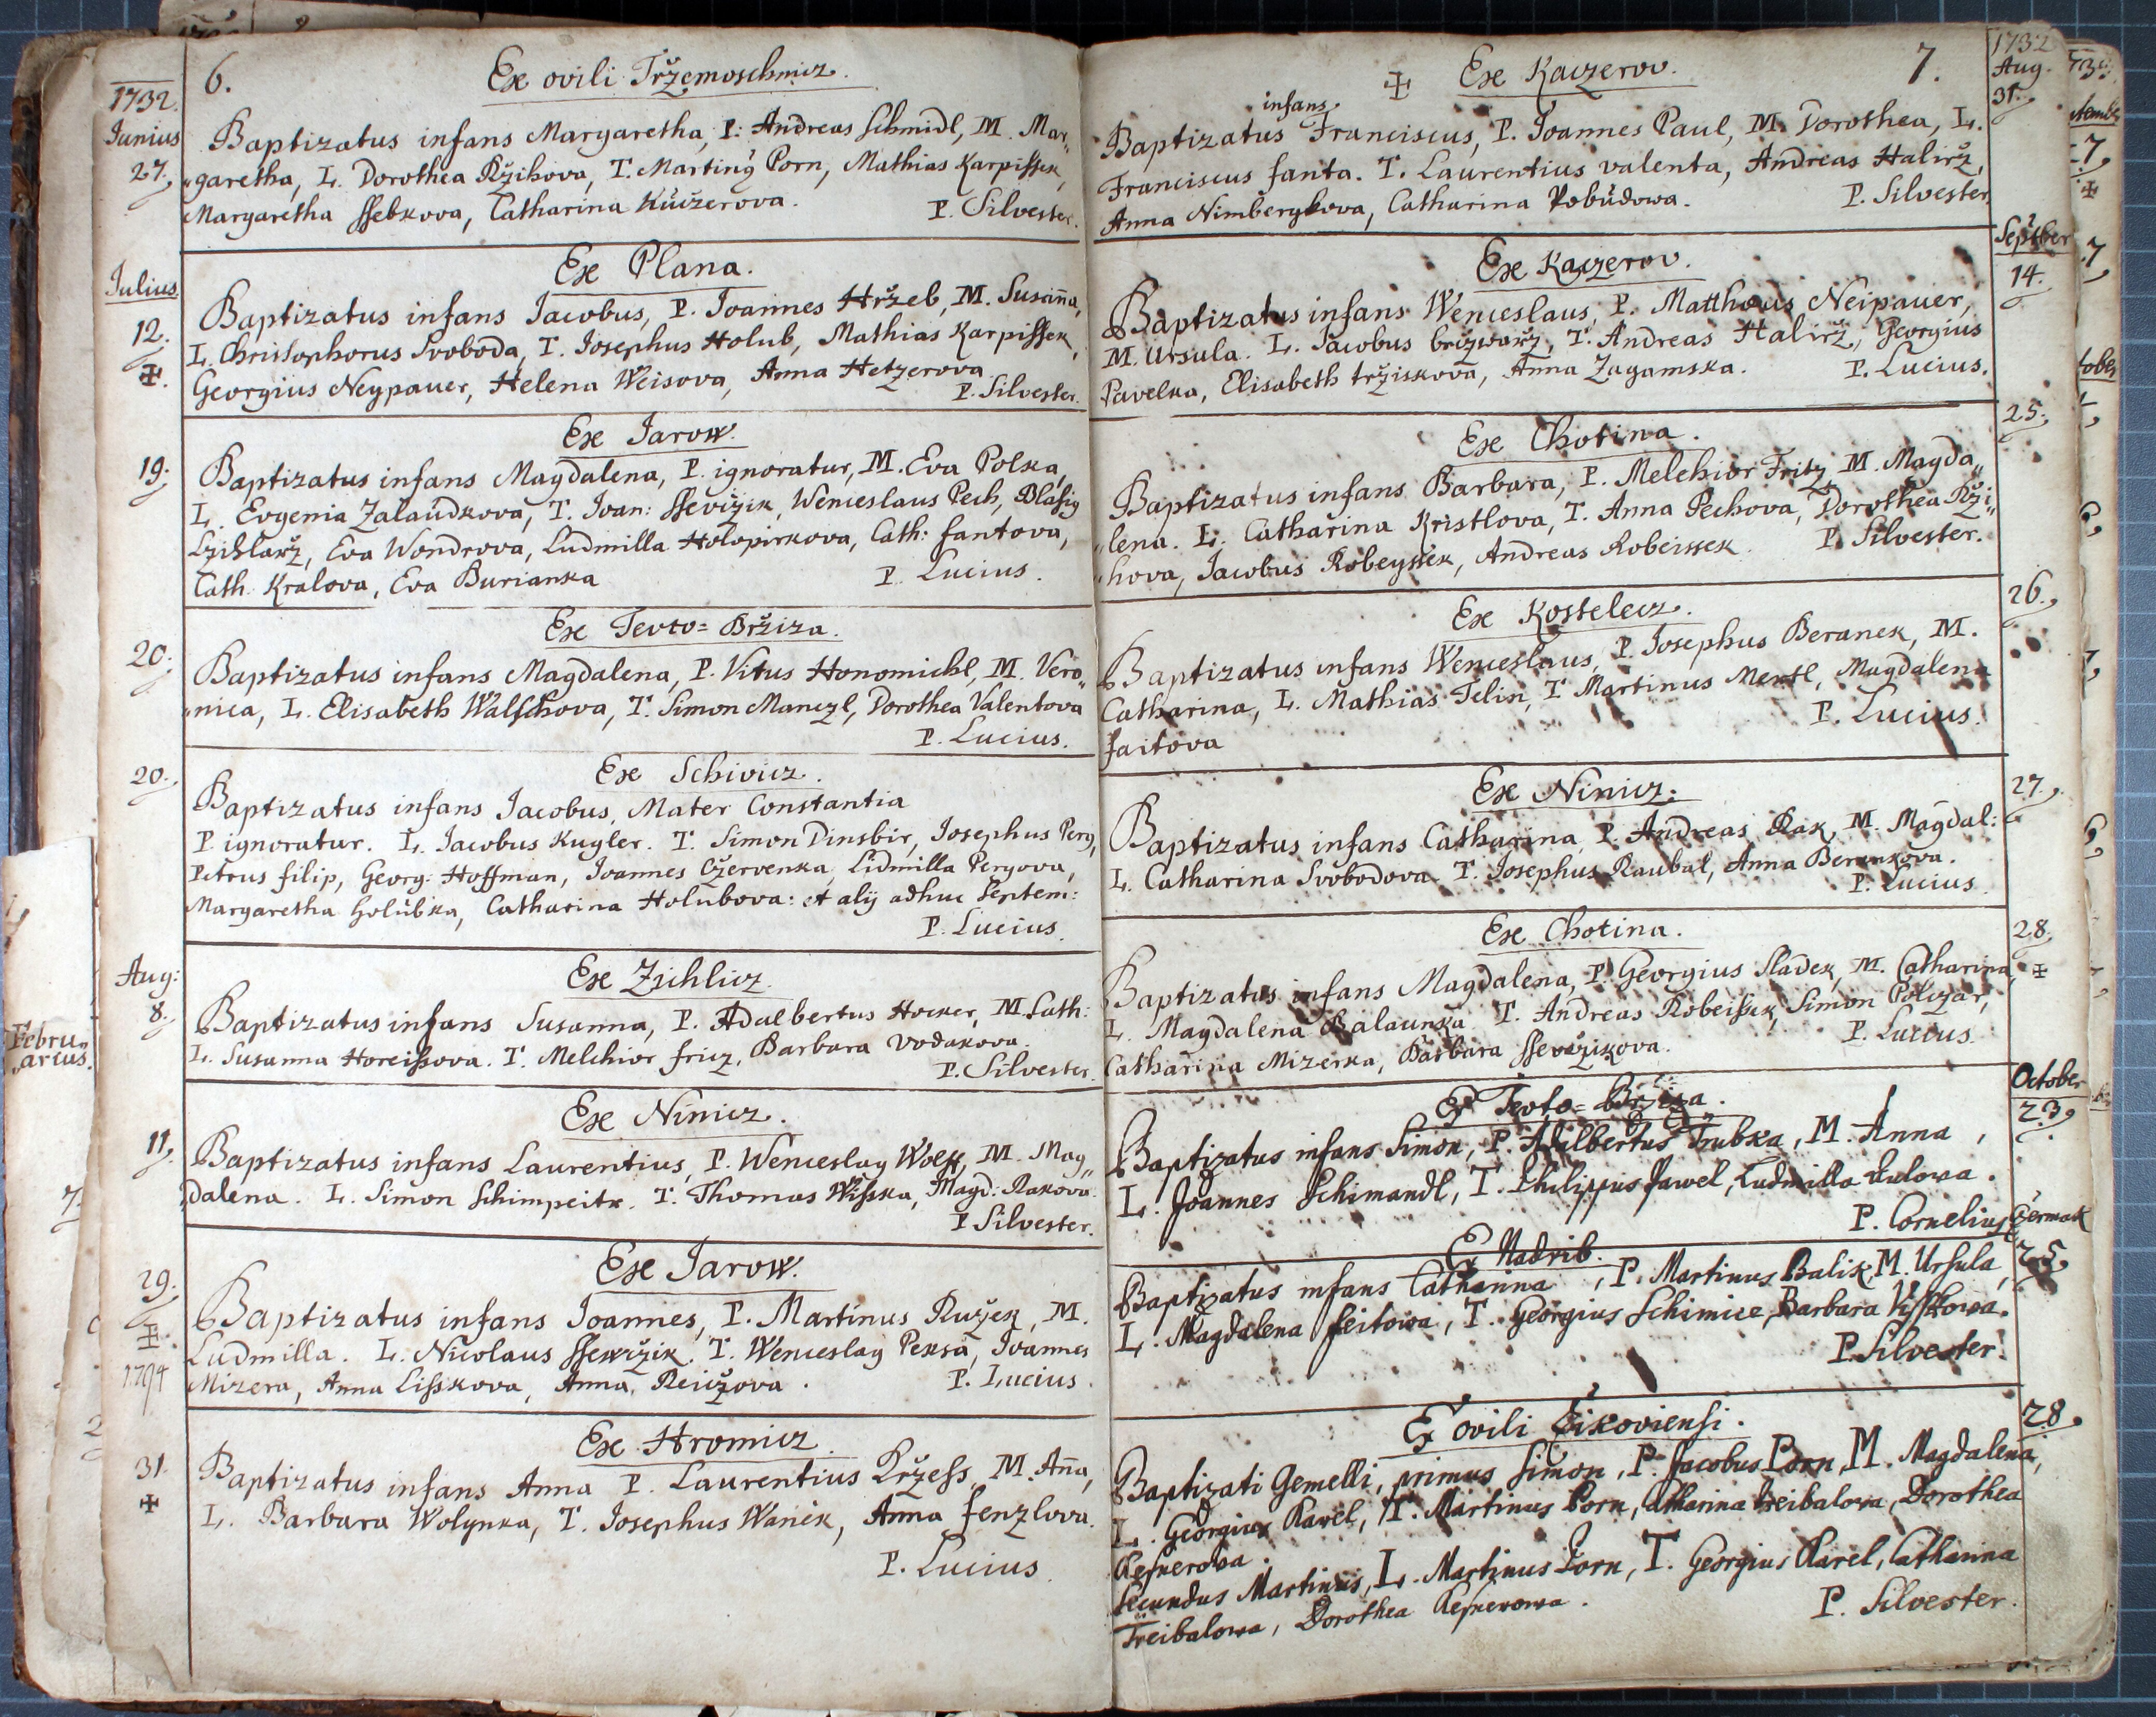 6.
Ex ovili Tržemoschnicz.
1732.
Junius
27.
Baptizatus infans Margaretha, P. Andreas Schmidl, M. Mar„
„garetha, L. Dorothea Ržihova, T. Martinq Porn, Mathias Karpissek,
Margaretha ssebkova, Catharina Kučzerova. P. Silvester.
Ex Plana.
Julius
12.
Baptizatus infans Jacobus, P. Joannes Hržeb, M. Susaña,
L. Christophorus Svoboda, T. Josephus Holub, Mathias Karpissek,
Georgius Neypauer, Helena Weisova, Anna Hetzerova
P. Silvester.
Ex Jarow.
19.
Baptizatus infans Magdalena, P. ignoratur, M. Eva Polska,
L. Evgenia Zalaudkova, T. Joan: ssevižik, Wenceslaus Pech, Blasig
Eva Wondrova, Ludmilla Holopirkova, Cath: fantova,
Cath. Kralova, Eva Burianka P. Lucius.
Ex Tevto= Bržiza.
20.
Baptizatus infans Magdalena, P. Vitus Honomichl, M. Vero„
„nica, L. Elisabeth Walschova, T. Simon Manczl, Dorothea Valentova
P. Lucius.
Ex Schivicz.
20.
Baptizatus infans Jacobus, Mater Constantia
P ignoratur. L. Jacobus Kugler. T. Simon Dinsbir, Josephus Perg,
Petrus filip, Georg: Hoffman, Joannes Cžervenka, Lidmilla Pergova,
Margaretha holubka, Catharina Holubova: et alij adhuc septem:
P. Lucius.
Ex Zichlicz.
Aug:
8.
Baptizatus infans Susanna, P. Adalbertus Hocker, M. Cath:
L. Susanna Horeissova. T. Melchior fricz, Barbara vodakova.
P. Silvester.
Ex Ninicz.
11.
Baptizatus infans Laurentius, P. Wenceslaq Wolff, M. Mag„
„dalena. L. Simon Schimpeitr. T. Thomas Wisska, Magd: Rakova.
P Silvester.
Ex Jarow.
29.
1794
Baptizatus infans Joannes, P. Martinus Ružek, M.
Ludmilla. L. Nicolaus ssewižik. T. Wenceslaq Peksa, Joannes
Mizera, Anna Lisskova, Anna Reučžova. P. Lucius.
Ex Hromicz
31.
Baptizatus infans Anna P. Laurentius Kržess, M. Aña,
L. Barbara Wolynka, T. Josephus Wanek, Anna fenzlova.
P. Lucius.
Febru„
„arius.
7.
1732
Aug.
31.
Ex Kaczerov.
infans
Baptizatus Franciscus, P. Joannes Paul, M. Dorothea, L.
Franciscus fanta. T. Laurentius valenta, Andreas Halirž,
Anna Nimbergkova, Catharina Pobudowa. P. Silvester.
Ex Kaczerov.
Septber
14.
Baptizatus infans Wenceslaus, P. Matthaus Neipauer,
M. Ursula. L. Jacobus T. Andreas Halirž, Georgius
Pavelka, Elisabeth tržiskova, Anna Zagamska. P. Lucius.
Ex Chotina.
25.
Baptizatus infans Barbara, P. Melchior Fritz, M. Magda„
„lena. L. Catharina Kristlova, T. Anna Pechova, Dorothea Rži„
„hova, Jacobus Robeyssek, Andreas Robeissek. P. Silvester.
Ex Kostelecz.
26.
Baptizatus infans Wenceslaus, P. Josephus Beranek, M.
Catharina, L. Mathias Telin, T. Martinus Mertl, Magdalena
faitova P. Lucius.
Ex Ninicz.
27.
Baptizatus infans Catharina, P. Andreas Rak, M. Magdal:
L. Catharina Svobodova. T. Josephus Raubal, Anna Berankova.
P. Lucius.
Ex Chotina.
28.
Baptizatus infans Magdalena, P. Georgius Sladek, M. Catharina,
L. Magdalena Balaunka T. Andreas Robeissek, Simon Policzar,
Catharina Mizerka, Barbara ssevižikova. P. Lucius.
October
23.
Ex Tevto= Bržiza.
Baptizatus infans Simon, P. Adalbertus Trubka, M. Anna,
L. Joannes Schimandl, T. Philippus Pawel, Ludmilla
P. Cornelius Czermak
Ex Nadrib.
25.
Baptizatus infans Catharina, P. Martinus Balik, M. Ursula,
L. Magdalena feitowa, T. Georgius Schimice, Barbara Visskowa.
P. Silvester.
Ex ovili Zikoviensi.
28.
Baptizati Gemelli, primus Simon, P. Jacobus Porn, M. Magdalena,
L. Georgius Karel, T. Martinus Porn, Catharina Treibalowa, Dorothea
Kefnerowa.
Secundus Martinus, L. Martinus Porn, T. Georgius Karel, Catharina
Treibalowa, Dorothea Kefnerowa. P. Silvester.